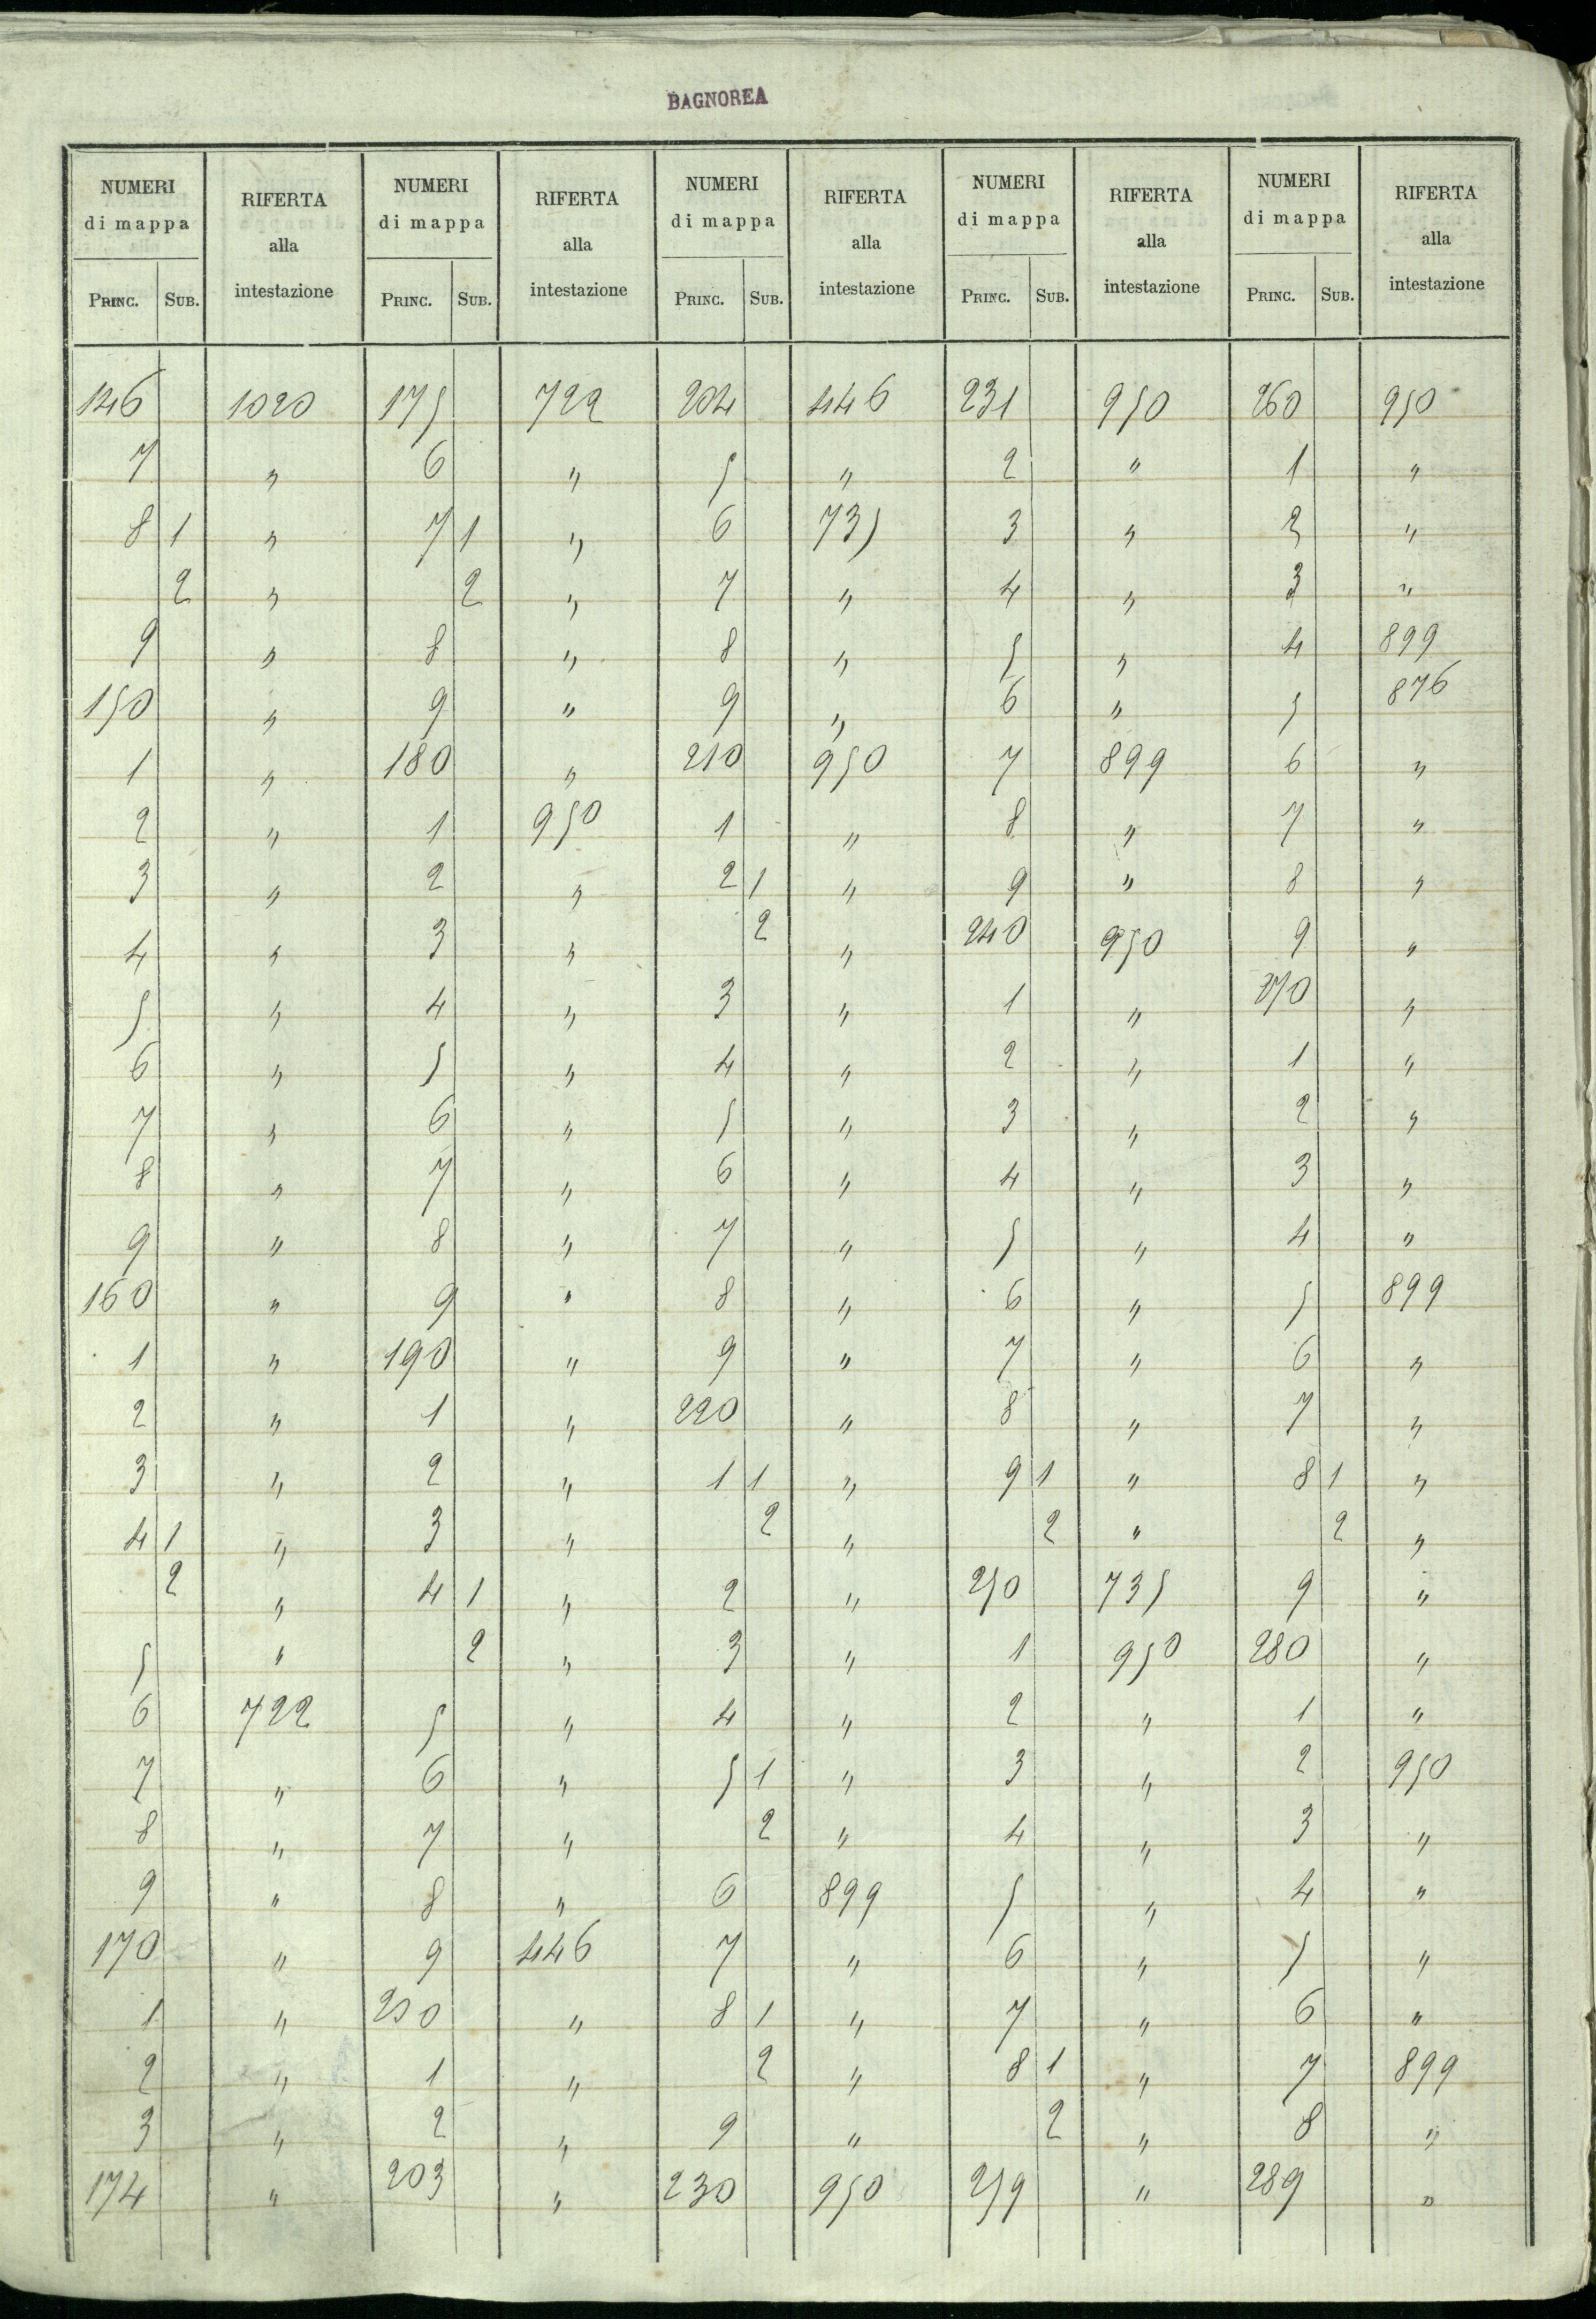 BAGNOREA
NUMERI di mappa RIFERTA alla intestazione NUMERI di mappa RIFERTA alla intestazione NUMERI di mappa RIFERTA alla intestazione NUMERI di mappa RIFERTA alla intestazione NUMERI di mappa RIFERTA alla intestazione
PRINC. SUB. PRINC. SUB. PRINC. SUB. PRINC. SUB. PRINC. SUB.
146 1020 175 722 204 446 231 950 260 950
7 " 6 " 5 " 2 " 1 "
8 1 " 7 1 " 6 735 3 " 2 "
2 " 2 " 7 " 4 " 3 "
9 " 8 " 8 " 5 " 4 899
150 " 9 " 9 " 6 " 5 876
1 " 180 " 210 950 7 899 6 "
2 " 1 950 1 " 8 " 7 "
3 " 2 " 2 1 " 9 " 8 "
4 " 3 " 2 " 240 950 9 "
5 " 4 " 3 " 1 " 270 "
6 " 5 " 4 " 2 " 1 "
7 " 6 " 5 " 3 " 2 "
8 " 7 " 6 " 4 " 3 "
9 " 8 " 7 " 5 " 4 "
160 " 9 " 8 " 6 " 5 899
1 " 190 " 9 " 7 " 6 "
2 " 1 " 220 " 8 " 7 "
3 " 2 " 1 1 " 9 1 " 8 1 "
4 1 " 3 " 2 " 2 " 2 "
2 " 4 1 " 2 " 250 735 9 "
5 " 2 " 3 " 1 950 280 "
6 722 5 " 4 " 2 " 1 "
7 " 6 " 5 1 " 3 " 2 950
8 " 7 " 2 " 4 " 3 "
9 " 8 " 6 899 5 " 4 "
170 " 9 446 7 " 6 " 5 "
1 " 200 " 8 1 " 7 " 6 "
2 " 1 " 2 " 8 1 " 7 899
3 " 2 " 9 " 2 " 8 "
174 " 203 " 230 950 259 " 289 "